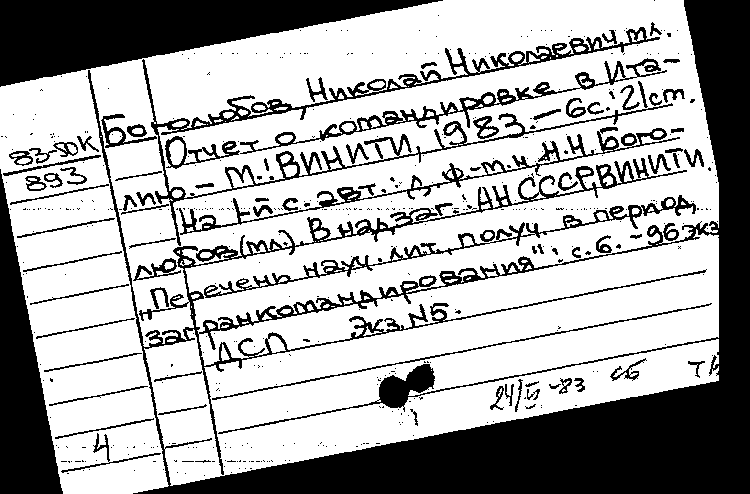 Боголюбов, Николай Николаевич, мл.
83-50К
893
Отчет о командировке в Ита-
лию. - М.: ВИНИТИ, 1983. - 6с.; 21ст.
На 1-й с. авт.: д. ф.-м.н. Н.Н. Бого-
любов (мл.). В надзаг.: АН СССР, ВИНИТИ.
„Перечень науч. лит., получ. в период
загранкомандирования": с.6. - 96 экз
ДСП. Экз. №5.
24/ -83 сб
4